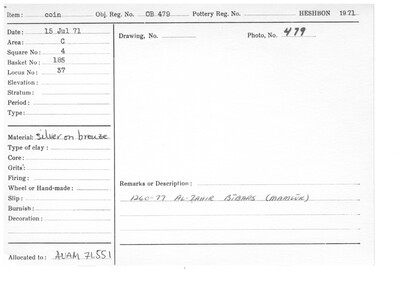 Item: coin Obj. Reg. No. OB 479 Pottery Reg. No. HESHBON 1971
Date: 15 Jul 71
Drawing, No. Photo, No. 479
Area: C
Square No: 4
Basket No: 185
Locus No: 37
Elevation:
Stratum:
Period:
Type:
Material: silver on bronze
Type of clay:
Core:
Grits:
Firing:
Wheel or Hand-made:
Remarks or Description:
Slip:
1260-77 AL-ZAHIR BIBARS (MAMLUK)
Burnish:
Decoration:
Allocated to: AUAM 71.551